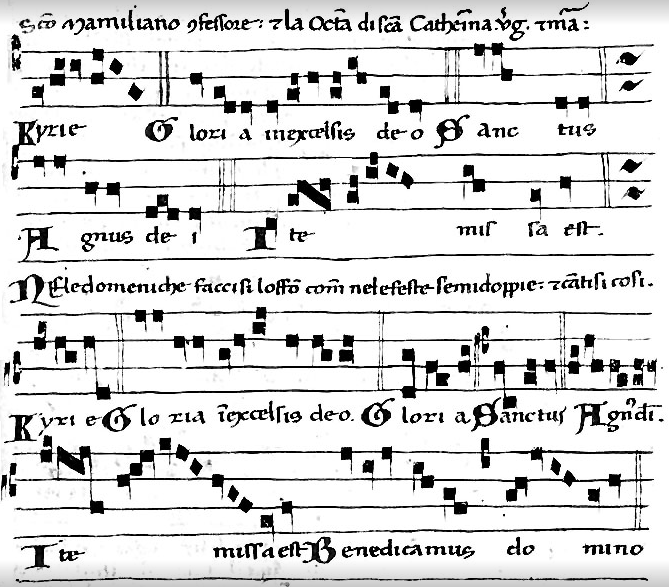 Sc̄o Mamiliano ꝯfessore: ⁊ la Octā di scā Catheīna v̄g. ⁊ m̄a:
Kyrie Glori a in excelsis de o Sanc tus
Agnus de i Ite mis sa est.
Nele domeniche faccisi loffō com̄ nele feste semidoppie: ⁊ cātisi cosi.
Kyri e Glo ria īexcelsis de o. Glori a Sanctus Agn9 di.
Ite missa est Benedicamus do mino